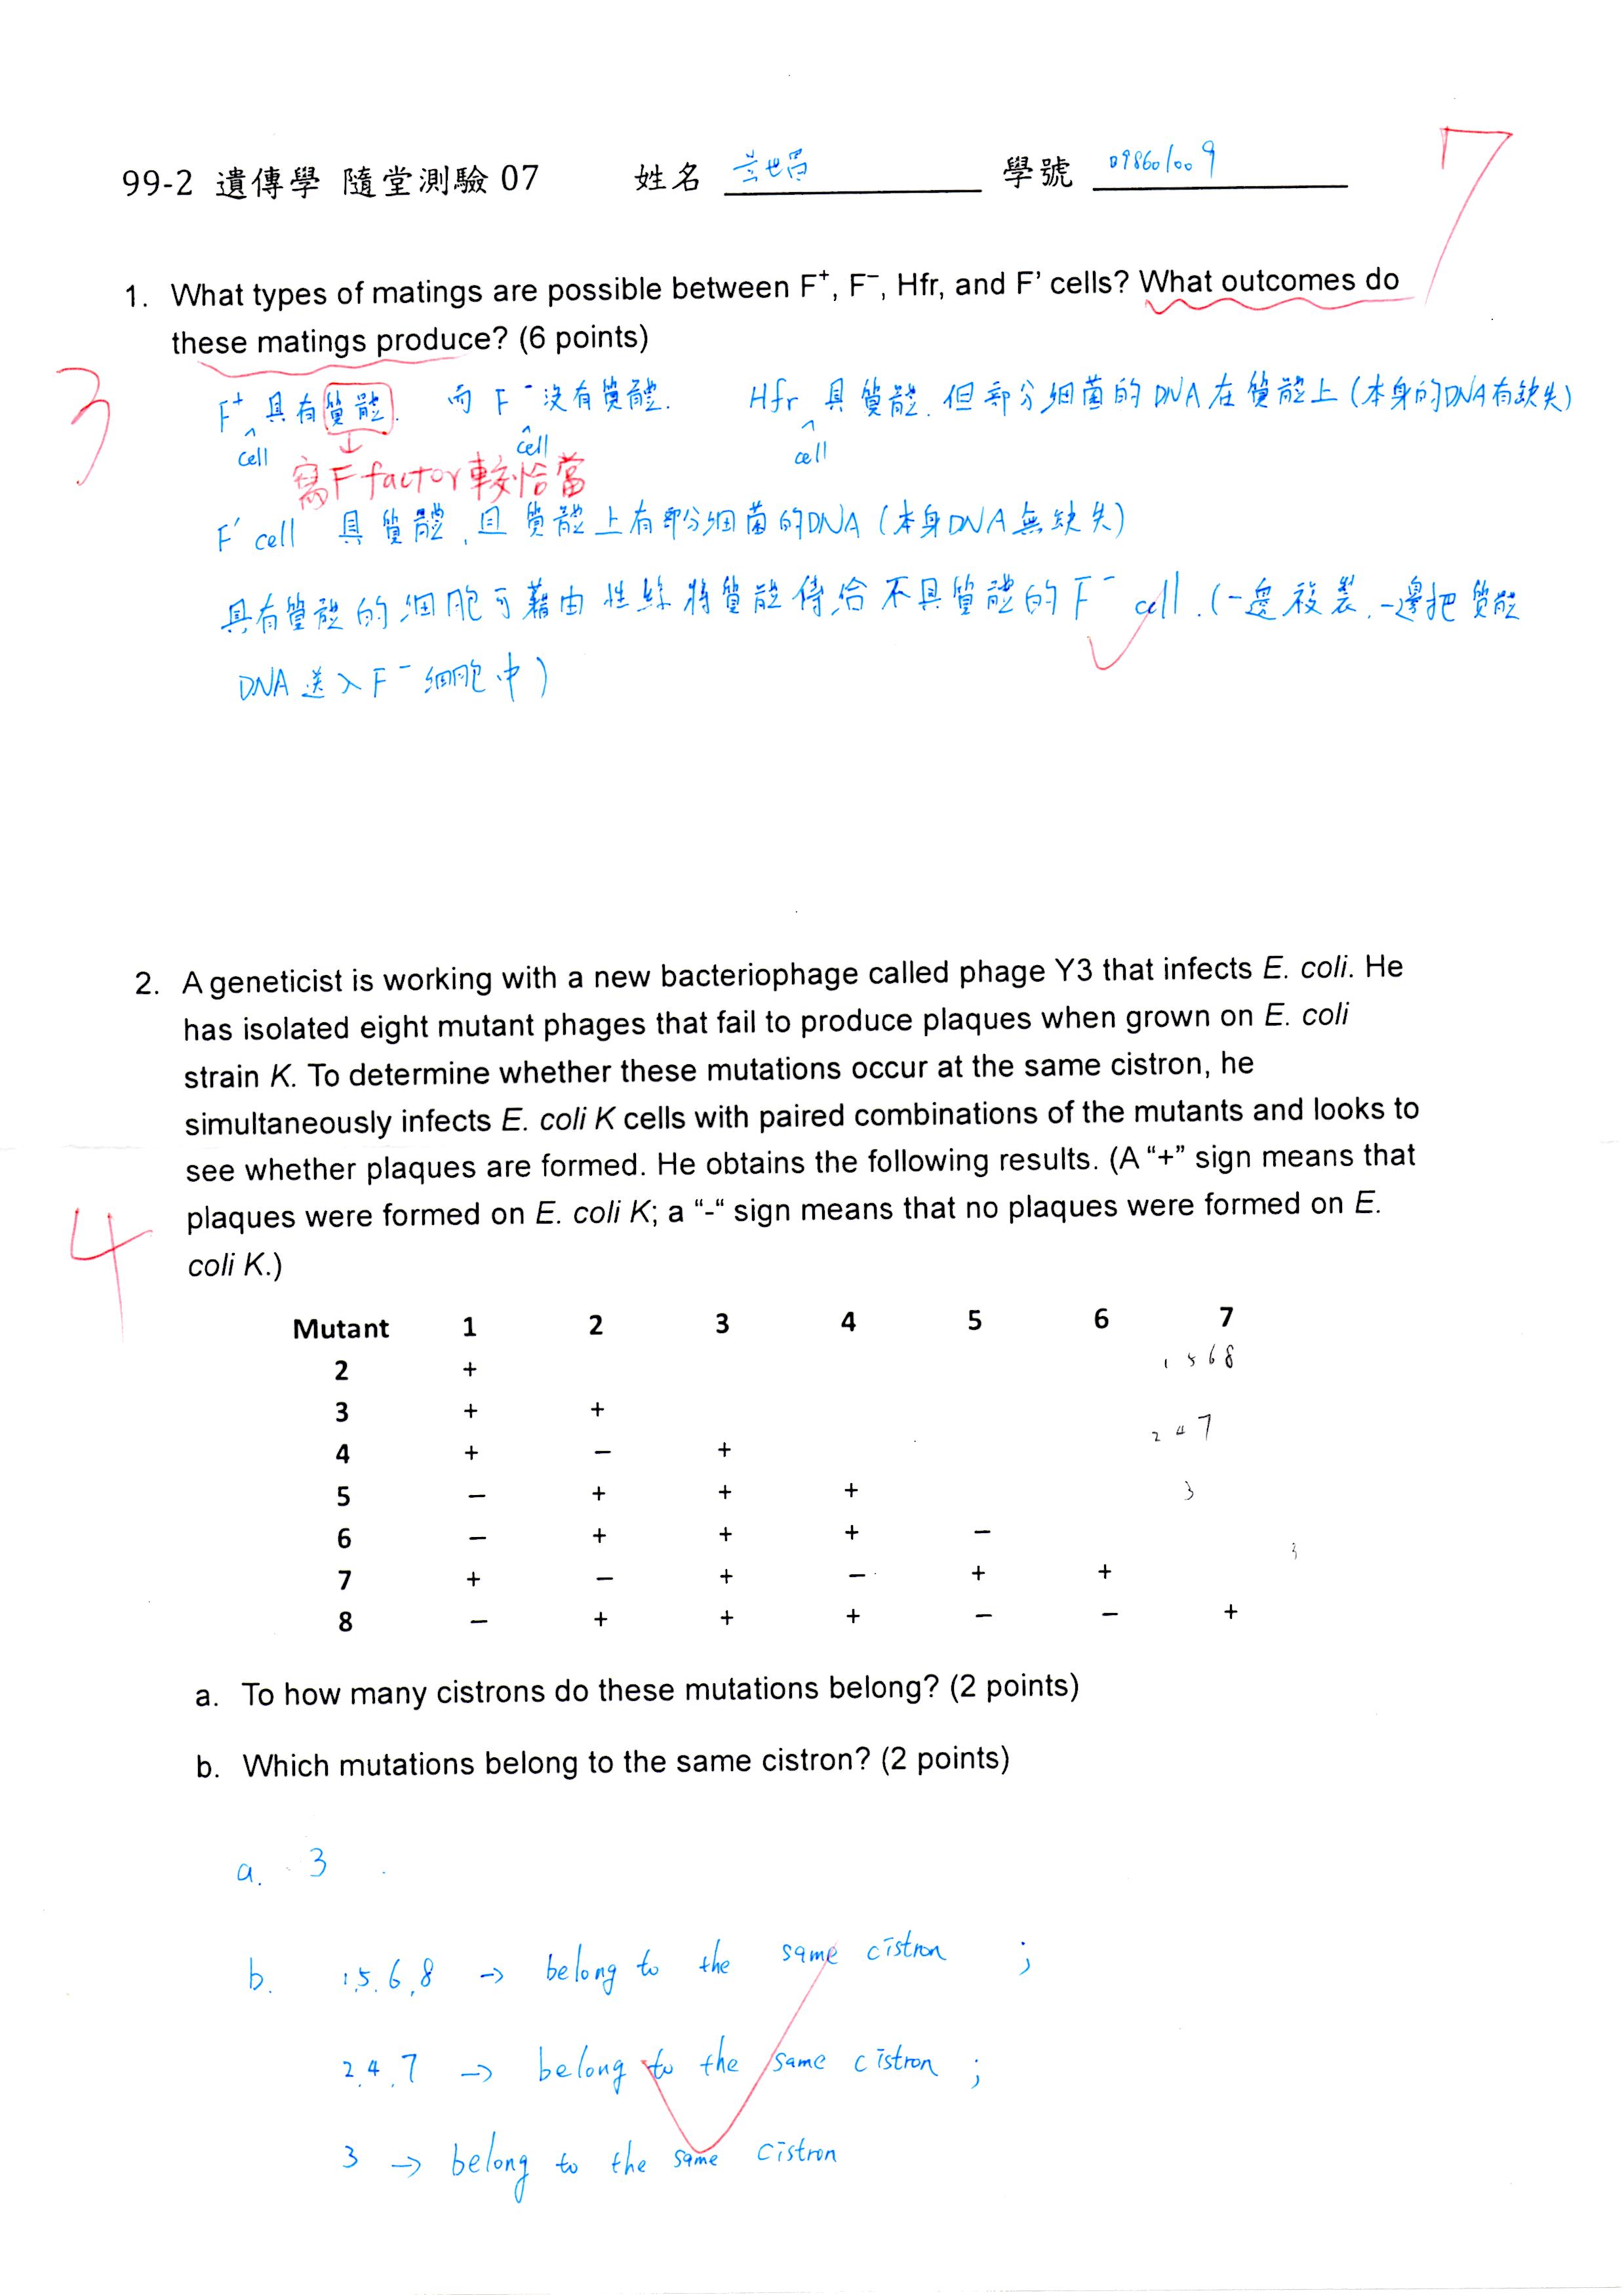 99-2 遺傳學 隨堂測驗 07 姓名 學號 098601009
7
1. What types of matings are possible between F⁺, F⁻, Hfr, and F’ cells? What outcomes do
these matings produce? (6 points)
3
F⁺ 具有質體. 而 F⁻ 沒有質體. Hfr 具質體. 但部分細菌的DNA在質體上(本身的DNA有缺失)
cell cell cell
寫F factor較恰當
F' cell 具質體, 且質體上有部分細菌的DNA (本身DNA無缺失)
具有質體的細胞可藉由性絲將質體傳給不具質體的F⁻ cell. (一邊複製, 一邊把質體
DNA送入F⁻細胞中)
2. A geneticist is working with a new bacteriophage called phage Y3 that infects E. coli. He
has isolated eight mutant phages that fail to produce plaques when grown on E. coli
strain K. To determine whether these mutations occur at the same cistron, he
simultaneously infects E. coli K cells with paired combinations of the mutants and looks to
see whether plaques are formed. He obtains the following results. (A “+” sign means that
plaques were formed on E. coli K; a “-“ sign means that no plaques were formed on E.
coli K.)
4
Mutant 1 2 3 4 5 6 7
2 +
1 5 6 8
3 + +
2 4 7
4 + − +
5 − + + +
3
6 − + + + −
3
7 + − + − + +
8 − + + + − − +
a. To how many cistrons do these mutations belong? (2 points)
b. Which mutations belong to the same cistron? (2 points)
a. 3
b. 1.5.6.8 → belong to the same cistron ;
2.4.7 → belong to the same cistron ;
3 → belong to the same cistron